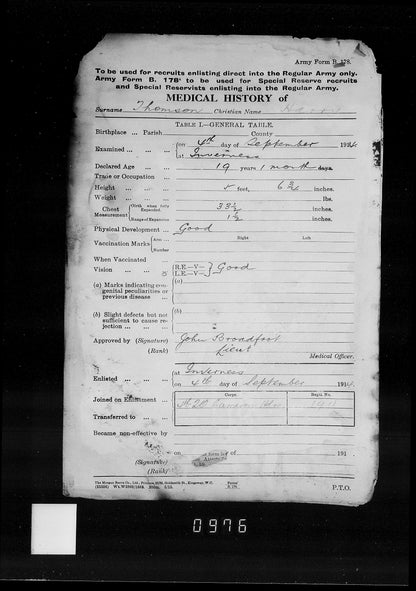 Army Form B. 178.
To be used for recruits enlisting direct into the Regular Army only.
Army Form B. 178A to be used for Special Reserve recruits
and Special Reservists enlisting into the Regular Army.
MEDICAL HISTORY of
Surname Thomson Christian Name
TABLE I.—GENERAL TABLE.
Birthplace ... Parish County
Examined ... on 4th day of September 1914
at Inverness
Declared Age ... 19 years 1 month days.
Trade or Occupation ...
Height ... 5 feet, 6 3/4 inches.
Weight ... lbs.
Chest Measurement Girth when fully Expanded. 33 1/2 inches.
Range of Expansion 1 1/2 inches.
Physical Development ... Good
Right Left
Vaccination Marks Arm ...
Number
When Vaccinated
Vision ... R.E.—V— L.E.—V— Good
(a) Marks indicating congenital peculiarities or previous disease ... (a)
(b) Slight defects but not sufficient to cause rejection ... (b)
Approved by (Signature) John Broadfoot
(Rank) Lieut
Medical Officer.
Enlisted ... at Inverness
on 4th day of September 1914
Corps. Regtl. No.
Joined on Enlistment ...
Transferred to ...
Became non-effective by
on 191
(Signature)
(Rank)
P.T.O.
0976